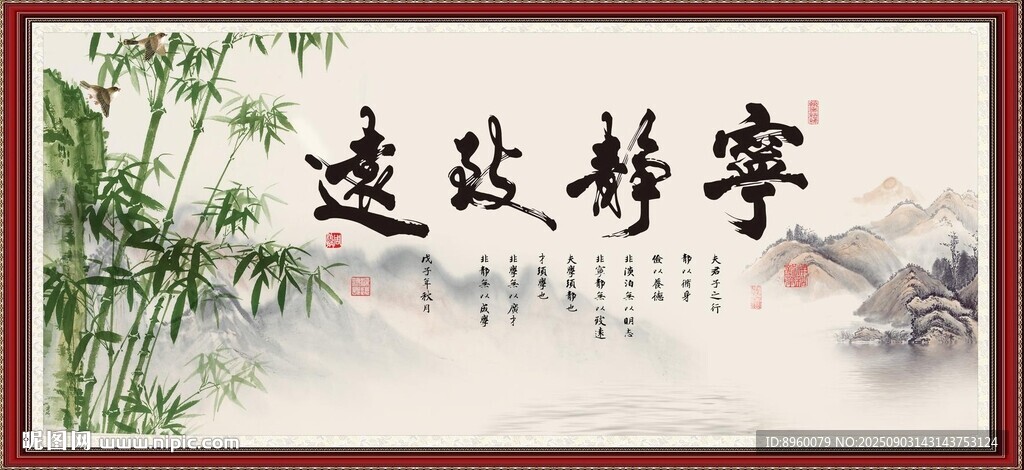 寧靜致遠
夫君子之行
靜以脩身
儉以養德
非澹泊無以明志
非寧靜無以致遠
夫學須靜也
才須學也
非學無以廣才
非靜無以成學
戊子年秋月
昵图网 www.nipic.com
ID:8960079 NO:20250903143143753124